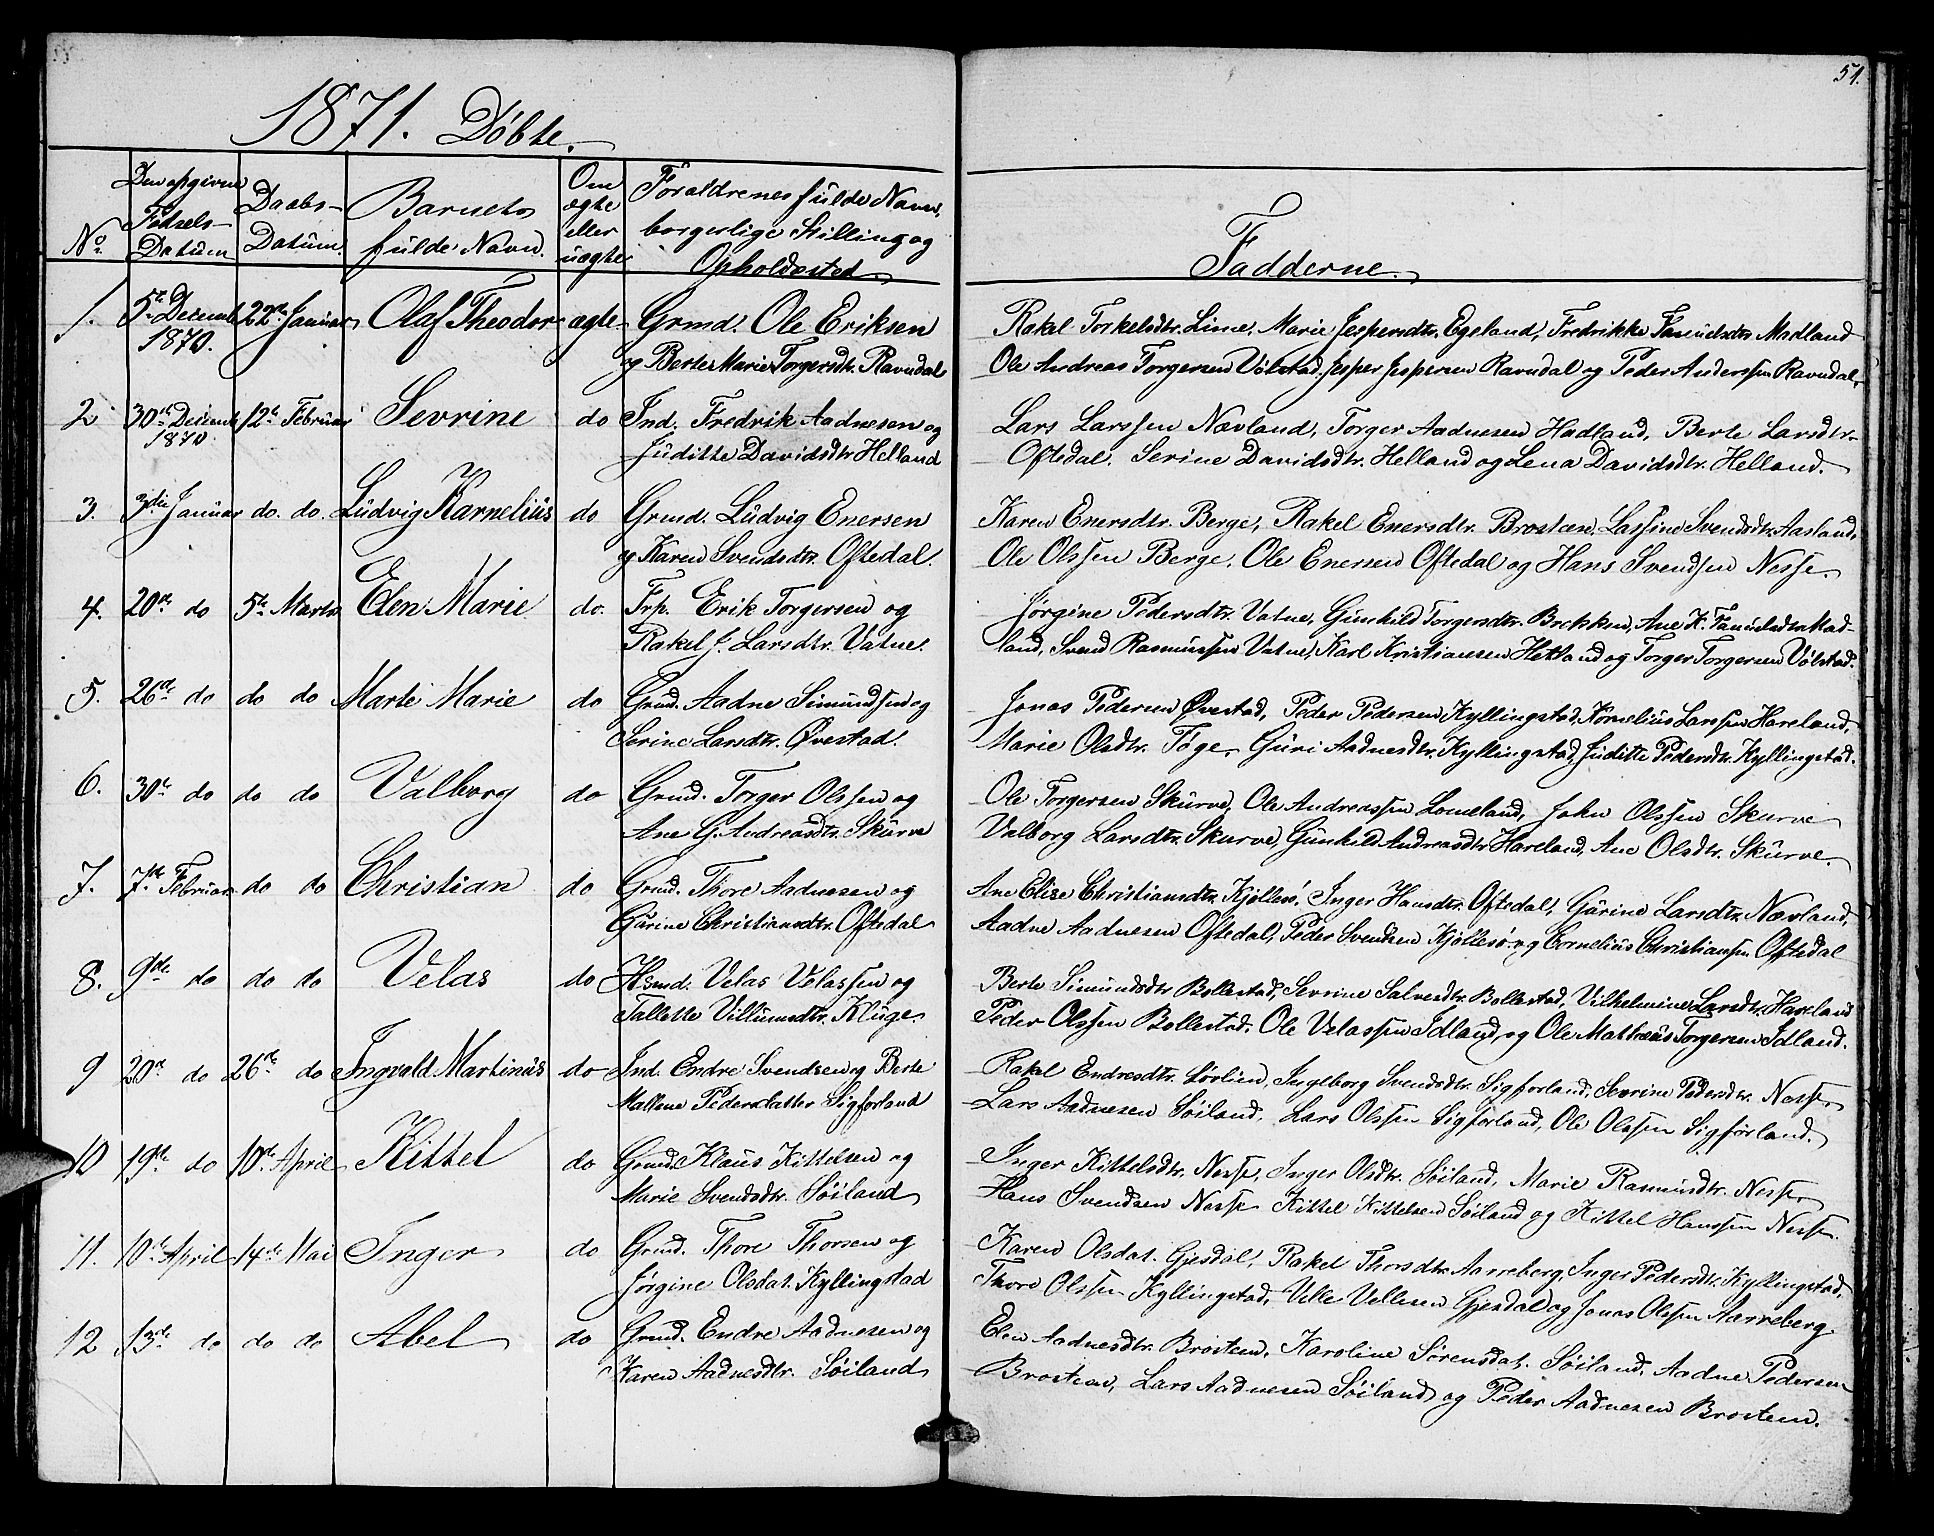 51.
1871. Döbte.
No.
Den opgivne
Fødsels-
Datum
Daabs-
Datum.
Barnets
fulde Navn.
Om
ægte
eller
uægte
Forældrenes fulde Navn,
borgerlige Stilling og
Opholdssted
Fadderne.
1. 5te Decemb. 22de Januar Olaf Theodor ægte Grmd. Ole Eriksen
1870. og Berte Marie Torgersdtr. Ravndal
Rakel Torkelsdtr. Lime, Marie Jespersdtr. Egeland, Fredrikke Madland
Ole Andreas Torgersen Vølstad, Jesper Jespersen Ravndal og Peder Anderssen Ravndal.
2 30te Decemb. 12te Februar Sevrine do Ind. Fredrik Aadnesen og
1870. Juditte Davidsdtr Helland
Lars Larssen Nævland, Torger Aadnesen Hadland, Berte Larsdtr.
Oftedal. Serine Davidsdtr. Helland og Lena Davidsdtr. Helland.
3. 3die Januar do. do. Ludvig Karnelius do Grmd. Ludvig Enersen
og Karen Svendsdtr. Oftedal.
Karen Enersdtr. Berge, Rakel Enersdtr. Brosten, Svendsdtr. Aasland,
Ole Olssen Berge, Ole Enersen Oftedal og Hans Svendsen Nesse.
4. 20de do 5te Marts Elen Marie do. Frp. Erik Torgersen og
Rakel J. Larsdtr. Vatne.
Jørgine Pedersdtr. Vatne, Gunhild Torgersdtr. Bekken, Ane K. Mad-
land, Svend Rasmussen Vatne, Karl Kristiansen Hetland og Torger Torgersen Vølstad.
5. 26de do do do Marte Marie do Grmd. Aadne Simundsen og
Serine Larsdtr. Øvestad.
Jonas Pedersen Øvestad, Peder Pedersen Kyllingstad, Kornelius Larssen Hareland,
Marie Olsdtr. Tøge, Guri Aadnesdtr. Kyllingstad, Juditte Pedersdtr. Kyllingstad.
6. 30te do do do Valborg do Grmd. Torger Olssen og
Ane G. Andreasdtr. Skurve
Ole Torgersen Skurve, Ole Andreassen Lomeland, John Olssen Skurve
Valborg Larsdtr. Skurve, Gunhild Andreasdtr Hareland, Ane Olsdtr. Skurve.
7. 7de Februar do do Christian do Grmd. Thore Aadnesen og
Gurine Christiansdtr. Oftedal
Ane Elise Christiansdtr. Kjøllesø, Inger Hansdtr. Oftedal, Gurine Larsdtr. Nævland,
Aadne Aadnesen Oftedal, Peder Svendsen Kjøllesø og Cornelius Christiansen Oftedal
8. 9de do do do Velas do Hsmd. Velas Velassen og
Tallette Villumsdtr. Kluge.
Berte Simundsdtr Bollestad, Sevrine Salvesdtr. Bollestad, Vilhelmine Larsdtr. Hareland
Peder Olssen Bollestad, Ole Velassen Idland og Ole Mathæus Torgersen Idland.
9 20de do 26de do Ingvald Martinus do Ind. Endre Svendsen og Berte
Mallene Pedersdatter Sigforland
Rakel Endresdtr. Sørlien, Ingleborg Svendsdtr. Sigforland, Sevrine Pedersdtr. Nesse,
Lars Aadnesen Søiland, Lars Olssen Sigforland, Ole Olssen Sigforland.
10 19de do 10de April Kittel do Grmd. Klaus Kittelsen og
Marie Svendsdtr. Søiland
Inger Kittelsdtr. Nesse, Inger Olsdtr. Søiland, Marie Rasmusdtr. Nesse,
Hans Svendsen Nesse Kittel Kittelsen Søiland og Kittel Hanssen Nesse.
11. 10de April 14de Mai Inger do Grmd. Thore Thorsen og
Jørgine Olsdat. Kyllingstad
Karen Olsdat. Gjesdal, Rakel Thorsdtr. Aarreberg, Inger Pedersdtr. Kyllingstad,
Thore Olssen Kyllingstad, Veke Vellesen Gjesdal og Jonas Olssen Aarreberg.
12 13de do do do Abel do Grmd. Endre Aadnesen og
Karen Aadnesdtr. Søiland
Elen Aadnesdtr. Brosteen, Karoline Sørensdat. Søiland, Aadne Pedersen
Brosteen, Lars Aadnesen Søiland og Peder Aadnesen Brosteen.